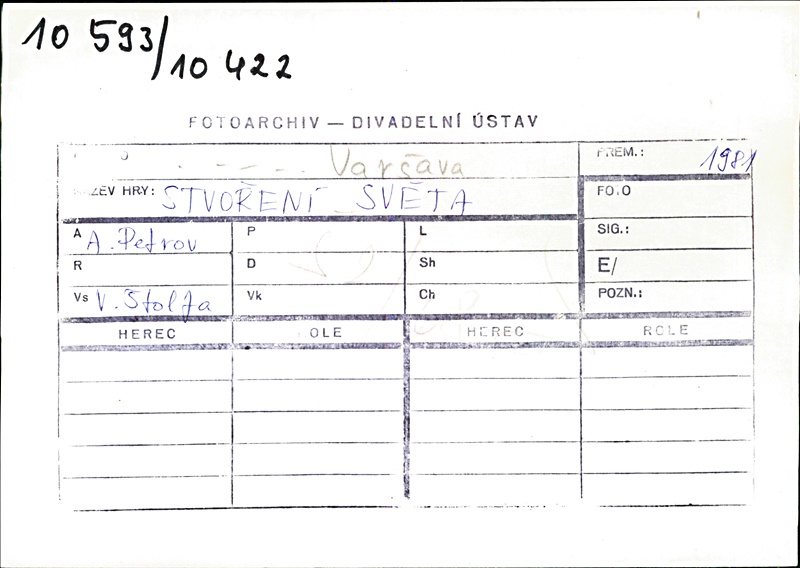 10 593/10 422
FOTOARCHIV — DIVADELNÍ ÚSTAV
Varšava
PREM.: 1981
NÁZEV HRY: STVOŘENÍ SVĚTA
FOTO
A A. Petrov
P
L
SIG.:
R
D
Sh
E/
Vs V. Štolfa
Vk
Ch
POZN.:
HEREC ROLE HEREC ROLE